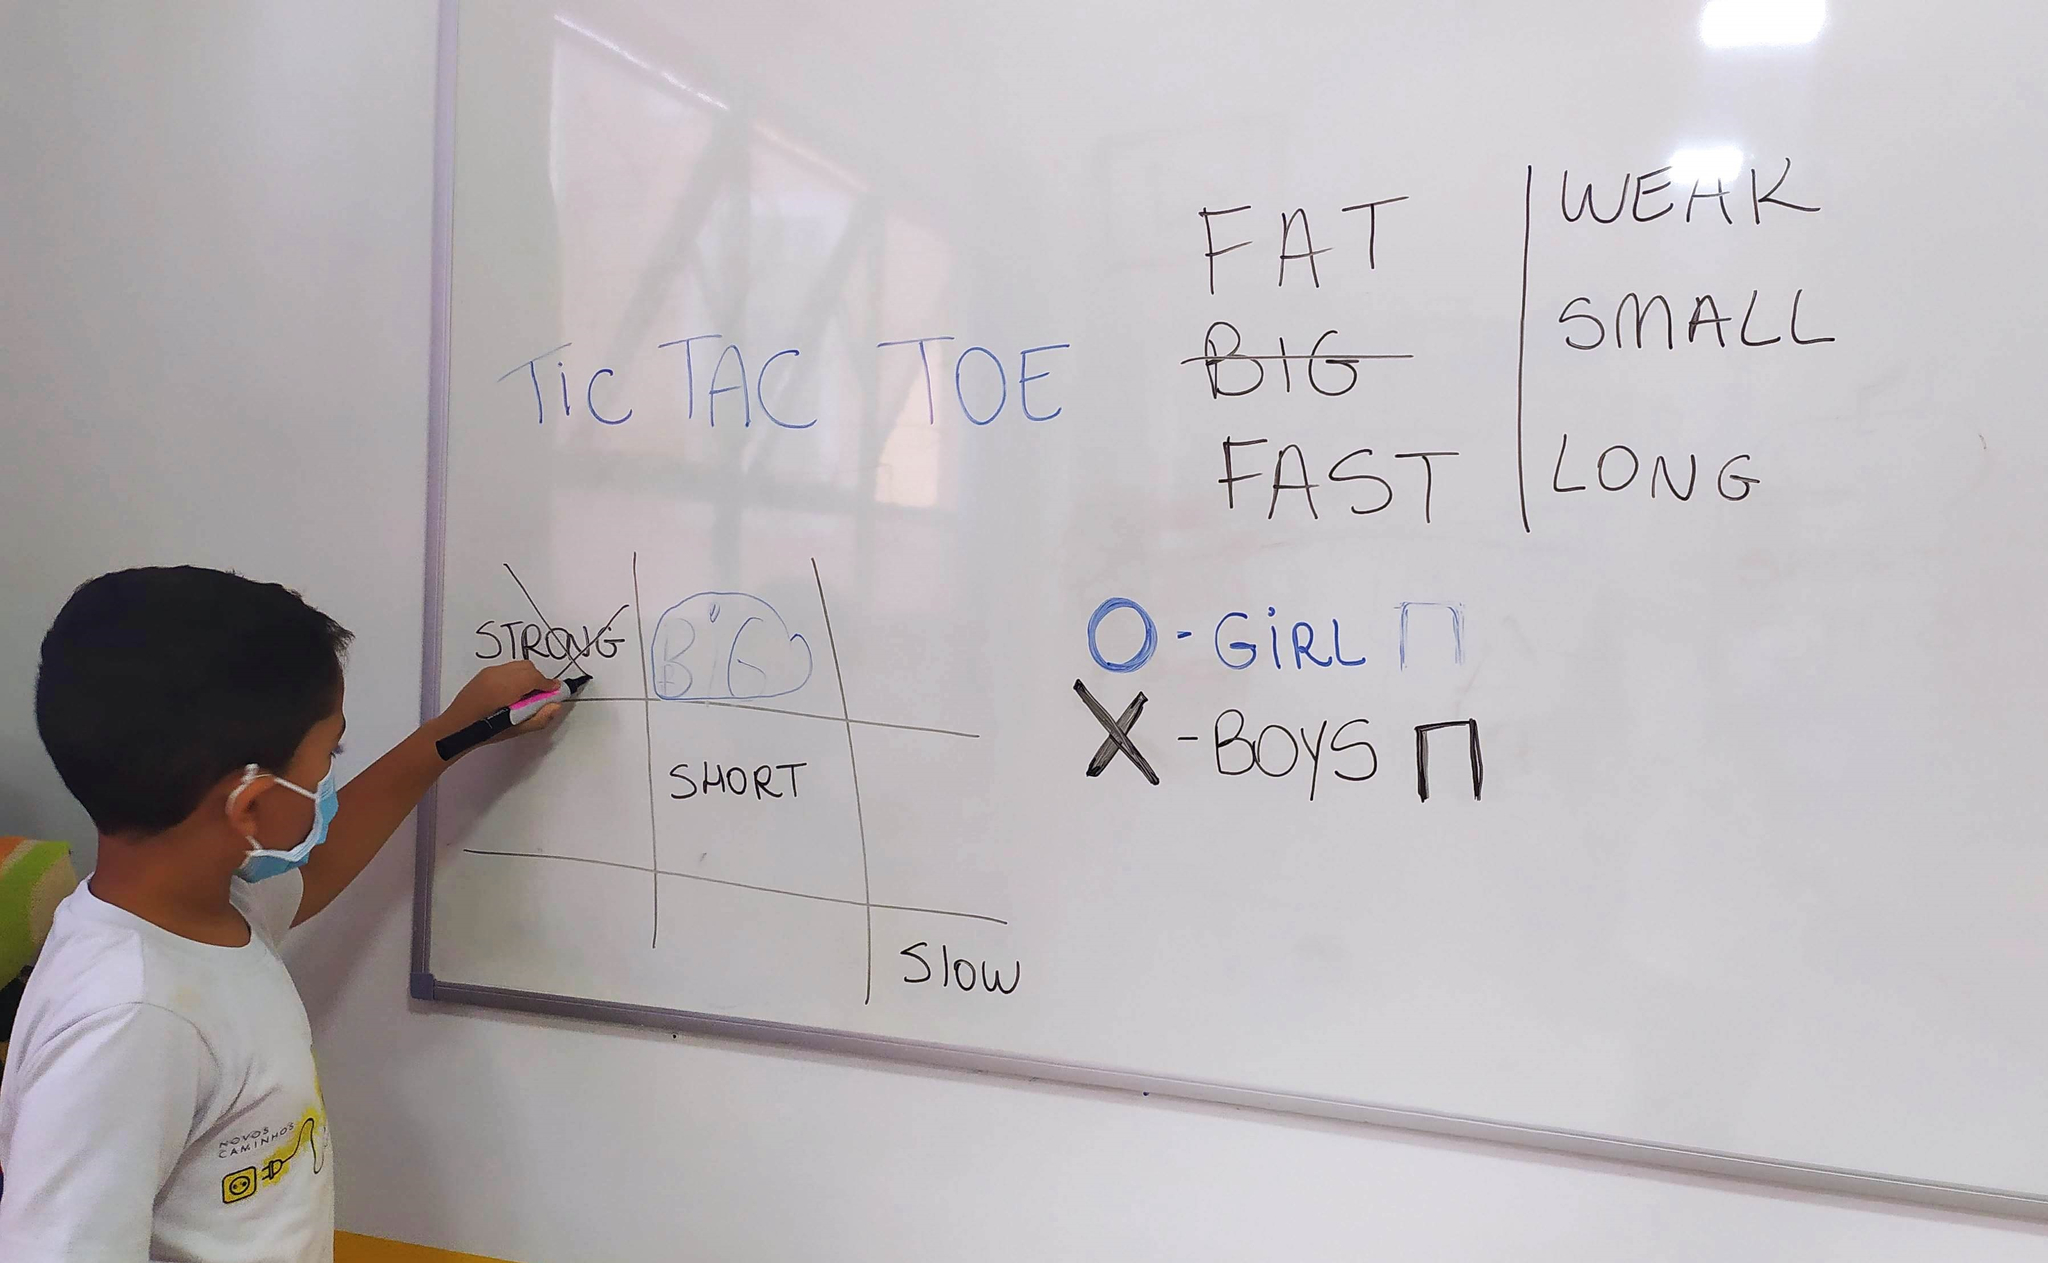 TiC TAC TOE
FAT
BIG
FAST
WEAK
SMALL
LONG
STRONG
BiG
SHORT
Slow
O - GiRL
X - BOYS
NOVOS
CAMINHOS